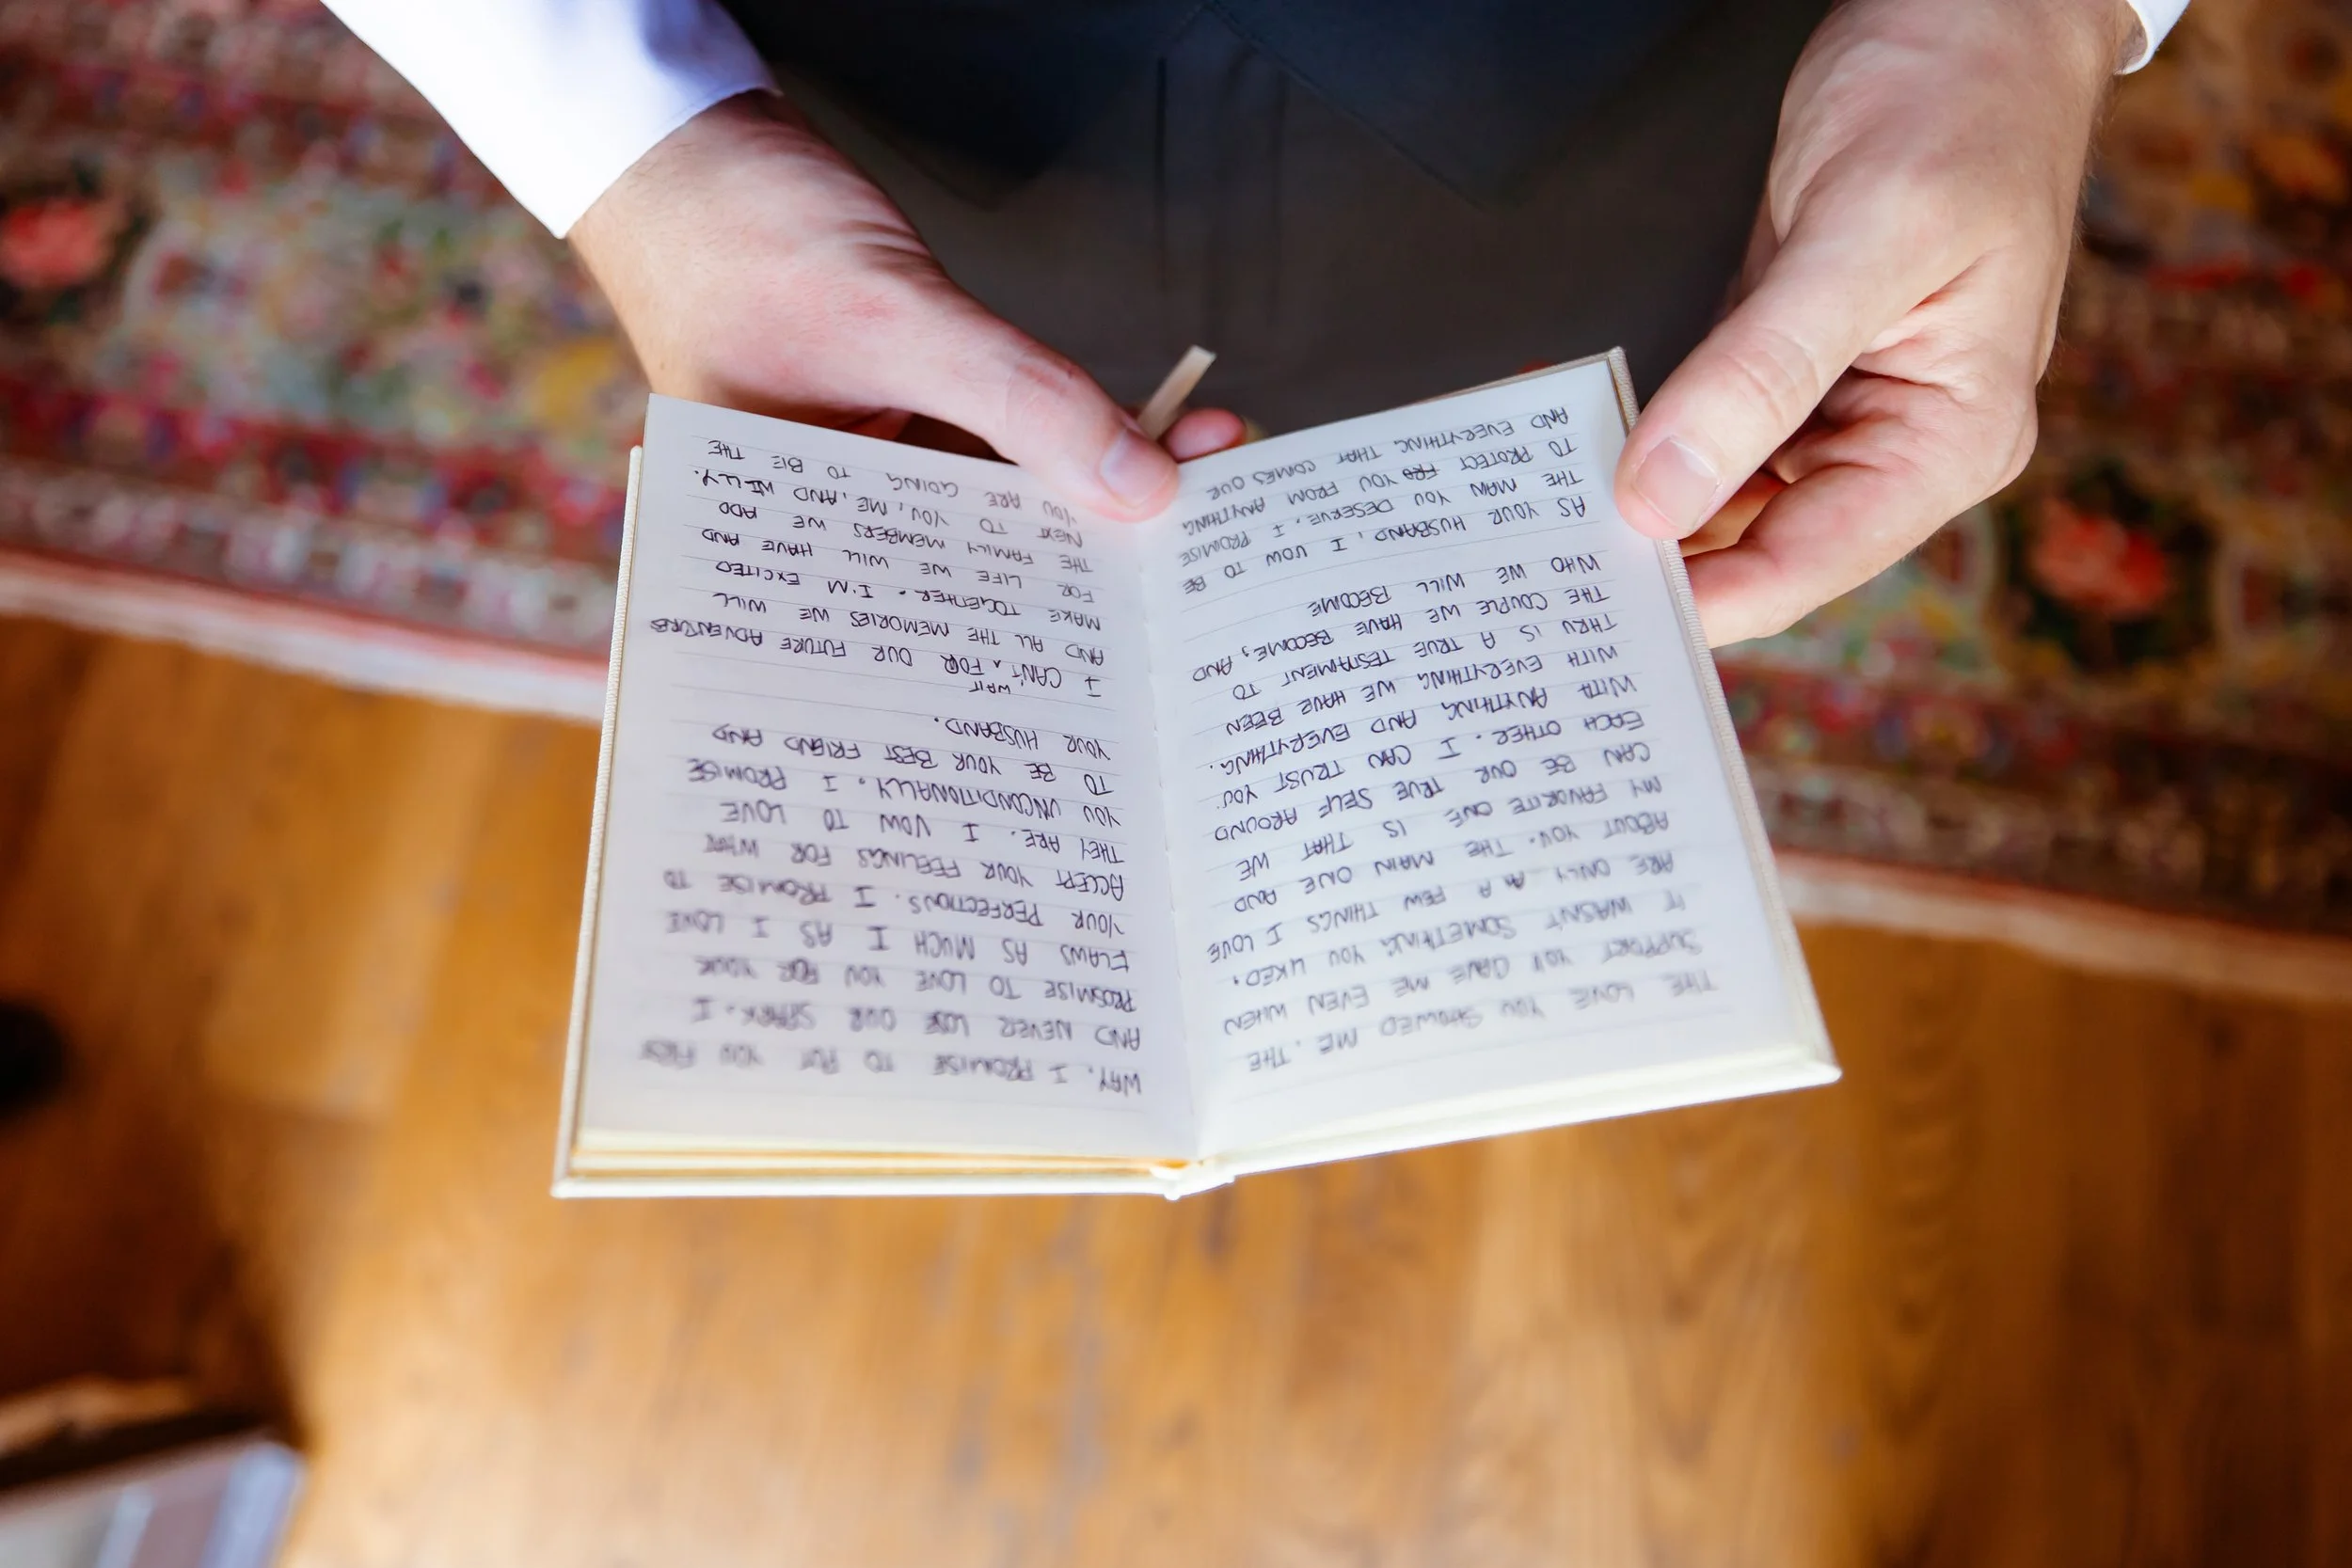 THE LOVE YOU SHOWED ME. THE
SUPPORT YOU GAVE ME EVEN WHEN
IT WASN'T SOMETHING YOU LIKED.
ARE ONLY A FEW THINGS I LOVE
ABOUT YOU. THE MAIN ONE AND
MY FAVORITE ONE IS THAT WE
CAN BE OUR TRUE SELF AROUND
EACH OTHER. I CAN TRUST YOU
WITH ANYTHING AND EVERYTHING.
WITH EVERYTHING WE HAVE BEEN
THRU IS A TRUE TESTAMENT TO
THE COUPLE WE HAVE BECOME, AND
WHO WE WILL BECOME
AS YOUR HUSBAND, I VOW TO BE
THE MAN YOU DESERVE. I PROMISE
TO PROTECT FRO YOU FROM ANYTHING
AND EVERYTHING THAT COMES OUR
WAY. I PROMISE TO PUT YOU FIRST
AND NEVER LOSE OUR SPARK. I
PROSMISE TO LOVE YOU FOR YOUR
FLAWS AS MUCH I AS I LOVE
YOUR PERFECTIONS. I PROMISE TO
ACCEPT YOUR FEELINGS FOR WHAT
THEY ARE. I VOW TO LOVE
YOU UNCONDITIONALLY. I PROMISE
TO BE YOUR BEST FRIEND AND
YOUR HUSBAND.
WAIT
I CAN'T ^ FOR OUR FUTURE ADVENTURES
AND ALL THE MEMORIES WE WILL
MAKE TOGETHER. I'M EXCITED
FOR LIFE WE WILL HAVE AND
THE FAMILY MEMBERS WE ADD
NEXT TO YOU, ME, AND WILLY.
YOU ARE GOING TO BE THE